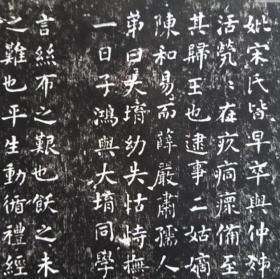 妣宋氏皆早卒與仲姊
活煢煢在疚疴癢備至
其歸王也逮事二姑嫡
陳和易而薛嚴肅孺人
弟曰大堉幼失怙恃撫
一日子鴻與大堉同學
言絲布之艱也飫之未
之雖也平生動循禮經